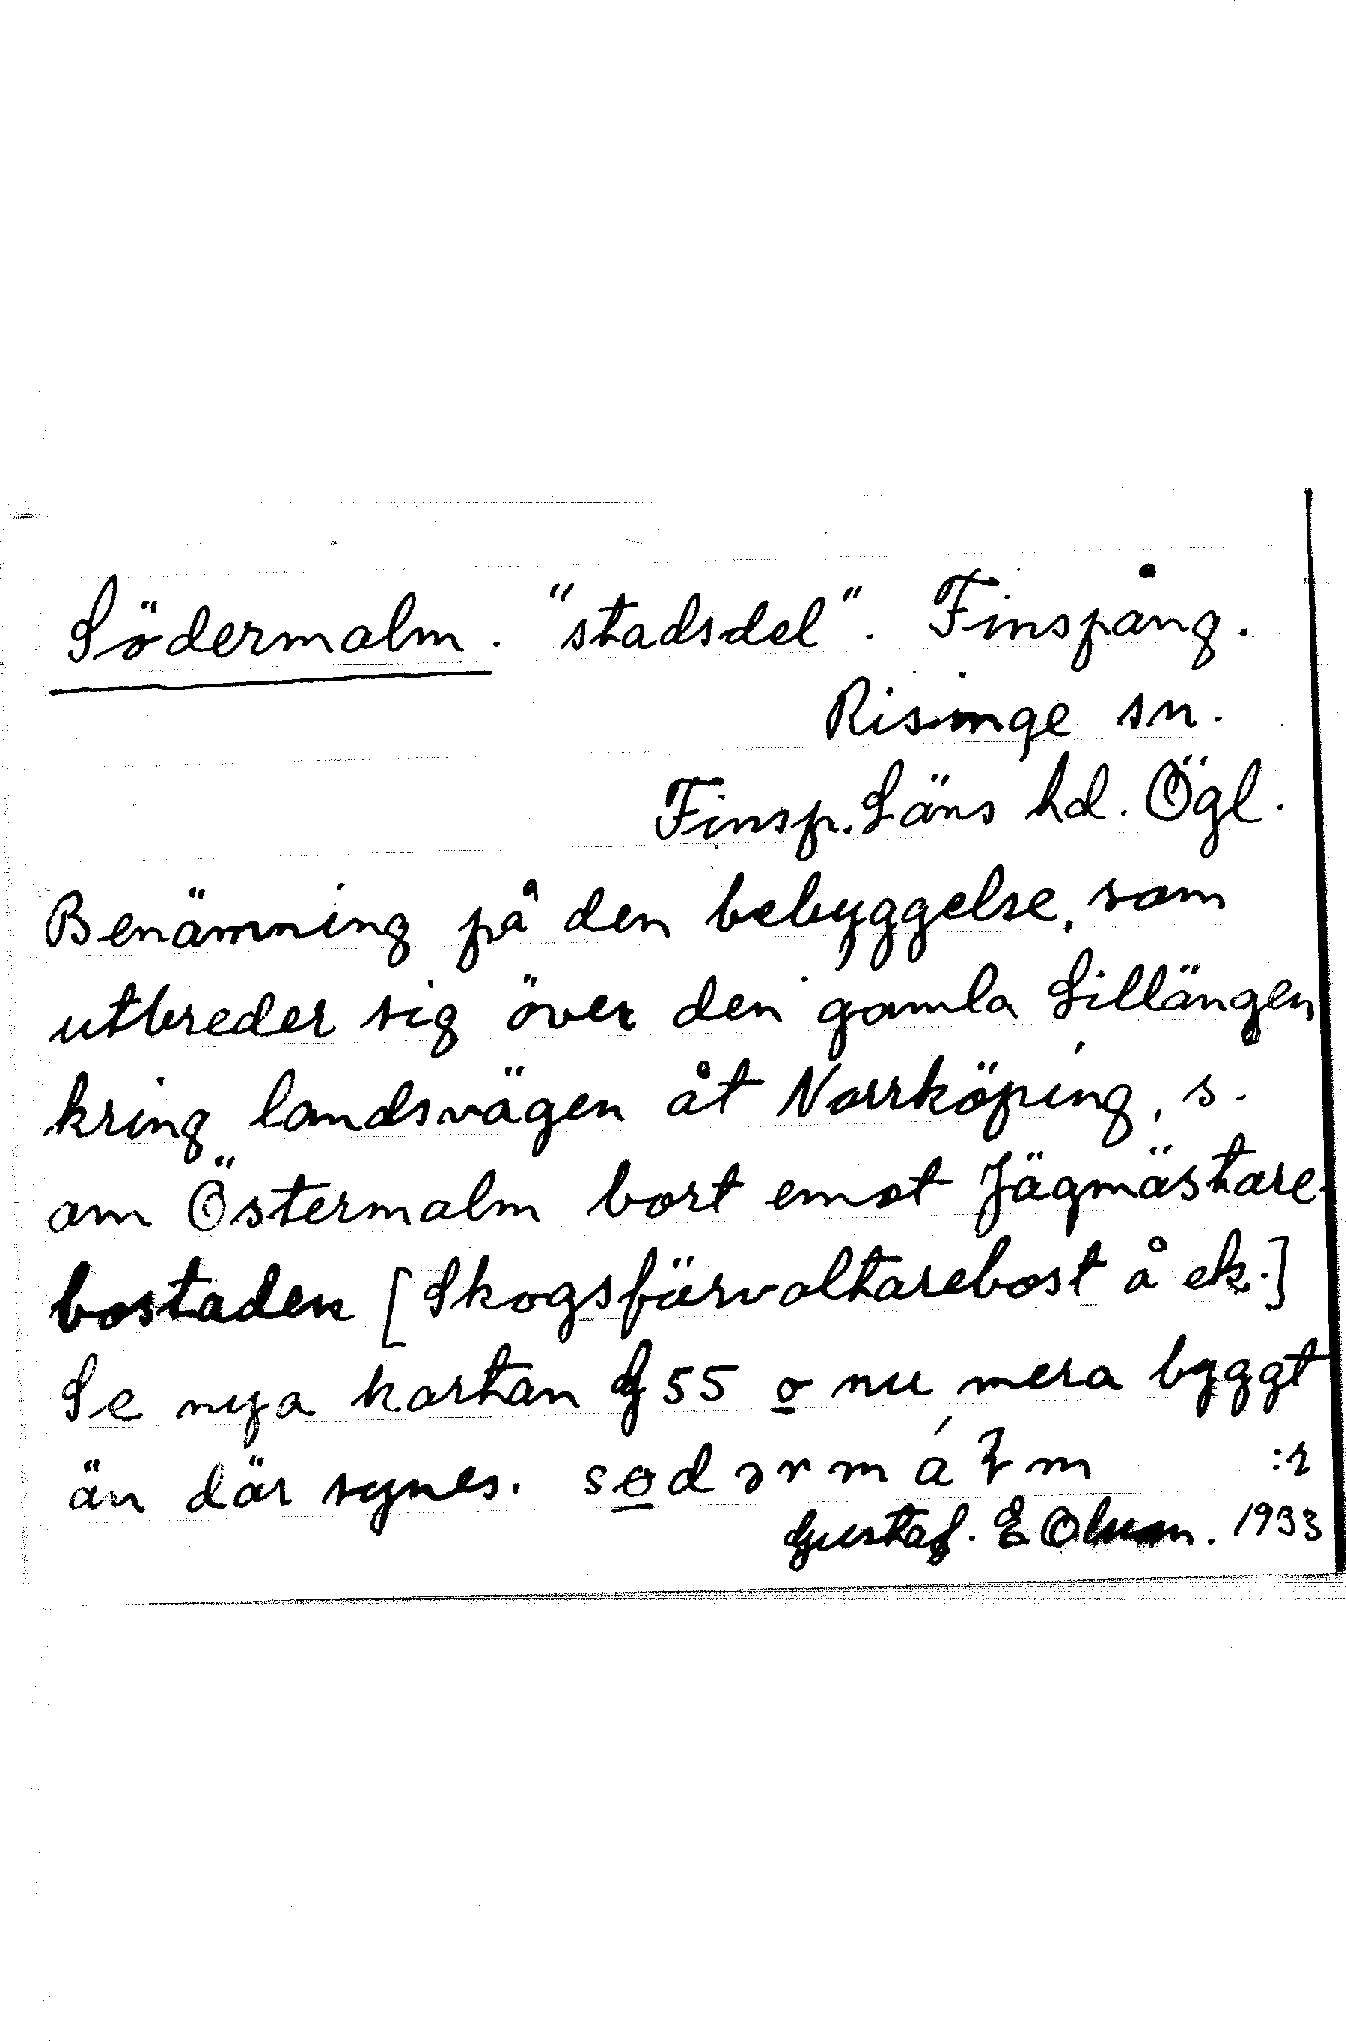 Södermalm. "stadsdel". Finspång.
Risinge sn.
Finsp. Läns hd. Ögl.
Benämning på den bebyggelse, som
utbreder sig över den gamla Lillängen
kring landsvägen åt Norrköping, s.
om Östermalm bort emot Jägmästare-
bostaden [Skogsförvaltarebost å ek.]
Se nya kartan G 55 o nu mera byggt
än där synes. sodərmáłm :r
Gustaf. E Olsson. 1933